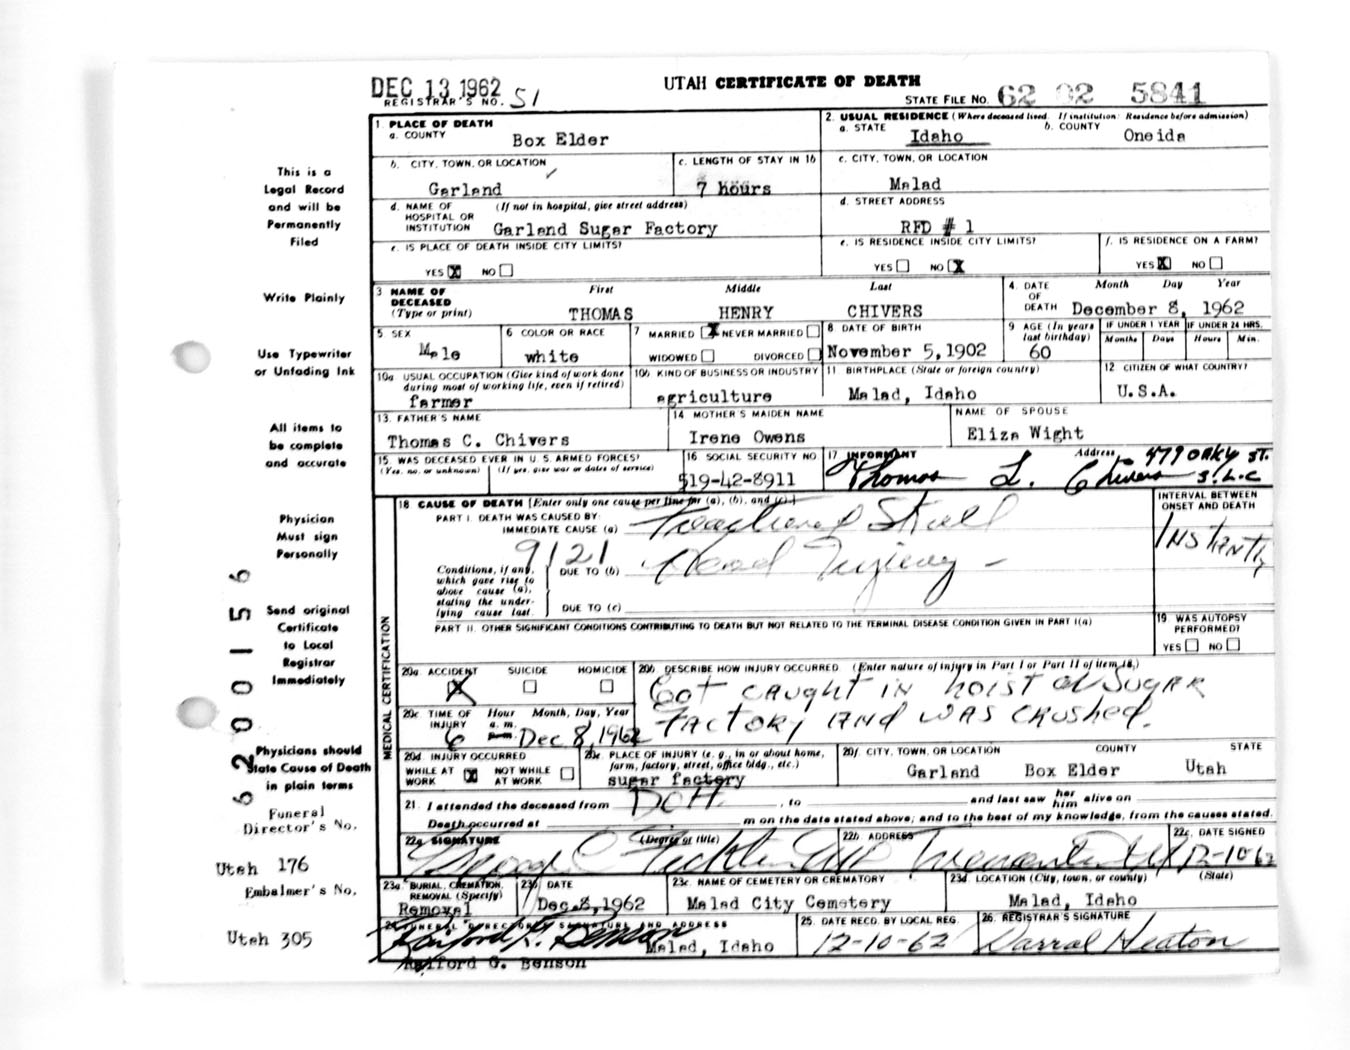 DEC 13 1962
UTAH CERTIFICATE OF DEATH
REGISTRAR'S NO. 51
STATE FILE NO. 62 02 5841
1 PLACE OF DEATH
a. COUNTY Box Elder
2. USUAL RESIDENCE (Where deceased lived. If institution: Residence before admission)
a. STATE Idaho b. COUNTY Oneida
b. CITY, TOWN, OR LOCATION Garland
c. LENGTH OF STAY IN 1b 7 hours
c. CITY, TOWN, OR LOCATION Malad
d. NAME OF HOSPITAL OR INSTITUTION (If not in hospital, give street address) Garland Sugar Factory
d. STREET ADDRESS RFD # 1
e. IS PLACE OF DEATH INSIDE CITY LIMITS? YES X NO
e. IS RESIDENCE INSIDE CITY LIMITS? YES NO X
f. IS RESIDENCE ON A FARM? YES X NO
3 NAME OF DECEASED (Type or print) First Middle Last
THOMAS HENRY CHIVERS
4. DATE OF DEATH Month Day Year
December 8, 1962
5. SEX Male
6 COLOR OR RACE white
7 MARRIED X NEVER MARRIED
WIDOWED DIVORCED
8 DATE OF BIRTH November 5, 1902
9 AGE (In years last birthday) 60
IF UNDER 1 YEAR Months Days
IF UNDER 24 HRS. Hours Min.
10a USUAL OCCUPATION (Give kind of work done during most of working life, even if retired) farmer
10b KIND OF BUSINESS OR INDUSTRY agriculture
11 BIRTHPLACE (State or foreign country) Malad, Idaho
12 CITIZEN OF WHAT COUNTRY? U.S.A.
13. FATHER'S NAME Thomas C. Chivers
14 MOTHER'S MAIDEN NAME Irene Owens
NAME OF SPOUSE Eliza Wight
15 WAS DECEASED EVER IN U.S. ARMED FORCES? (Yes, no, or unknown) (If yes, give war or dates of service)
16 SOCIAL SECURITY NO 519-42-8911
17 INFORMANT Thomas L. Chivers Address 479 OAKY ST. S.L.C
18 CAUSE OF DEATH [Enter only one cause per line for (a), (b), and (c).]
PART I. DEATH WAS CAUSED BY:
IMMEDIATE CAUSE (a) Fractured Skull
9121
Conditions, if any, which gave rise to above cause (a), stating the underlying cause last.
DUE TO (b) Head Injury -
DUE TO (c)
INTERVAL BETWEEN ONSET AND DEATH INSTANTLY
PART II. OTHER SIGNIFICANT CONDITIONS CONTRIBUTING TO DEATH BUT NOT RELATED TO THE TERMINAL DISEASE CONDITION GIVEN IN PART I(a)
19. WAS AUTOPSY PERFORMED? YES NO
MEDICAL CERTIFICATION
20a. ACCIDENT X SUICIDE HOMICIDE
20b. DESCRIBE HOW INJURY OCCURRED (Enter nature of injury in Part I or Part II of item 18.)
Got CAUGHT IN HOIST at SUGAR
FACTORY AND WAS CRUSHED.
20c TIME OF INJURY Hour a.m. p.m. Month, Day, Year
6 Dec 8, 1962
20d INJURY OCCURRED
WHILE AT WORK X NOT WHILE AT WORK
20e. PLACE OF INJURY (e. g., in or about home, farm, factory, street, office bldg., etc.)
sugar factory
20f. CITY, TOWN, OR LOCATION COUNTY STATE
Garland Box Elder Utah
21. I attended the deceased from DOA, to and last saw her him alive on
Death occurred at m on the date stated above; and to the best of my knowledge, from the causes stated.
22a SIGNATURE (Degree or title)
22b. ADDRESS Tremonton Ut
22c. DATE SIGNED 12-10-62
23a. BURIAL, CREMATION, REMOVAL (Specify) Removal
23b DATE Dec. 8, 1962
23c. NAME OF CEMETERY OR CREMATORY Malad City Cemetery
23d. LOCATION (City, town, or county) (State) Malad, Idaho
24. FUNERAL DIRECTOR'S SIGNATURE AND ADDRESS
Malad, Idaho
Raiford G. Benson
25. DATE RECD. BY LOCAL REG. 12-10-62
26. REGISTRAR'S SIGNATURE Darral Heaton
This is a
Legal Record
and will be
Permanently
Filed
Write Plainly
Use Typewriter
or Unfading Ink
All items to
be complete
and accurate
Physician
Must sign
Personally
Send original
Certificate
to Local
Registrar
Immediately
Physicians should
State Cause of Death
in plain terms
Funeral
Director's No.
Utah 176
Embalmer's No.
Utah 305
62 00156